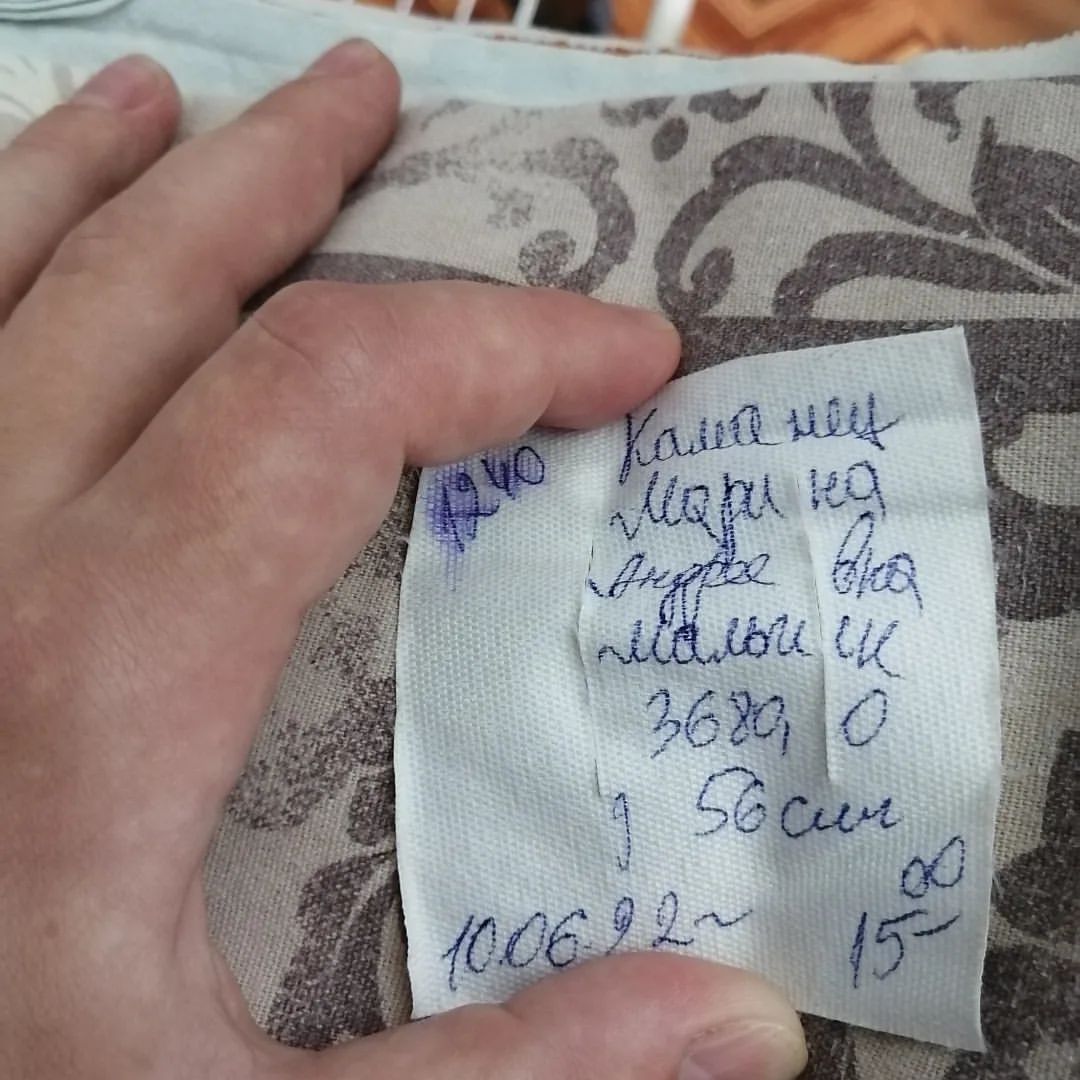 1240
Каманец
Марина
Андреевна
Мальчик
3680
д 56 см
10.06.22 15 00